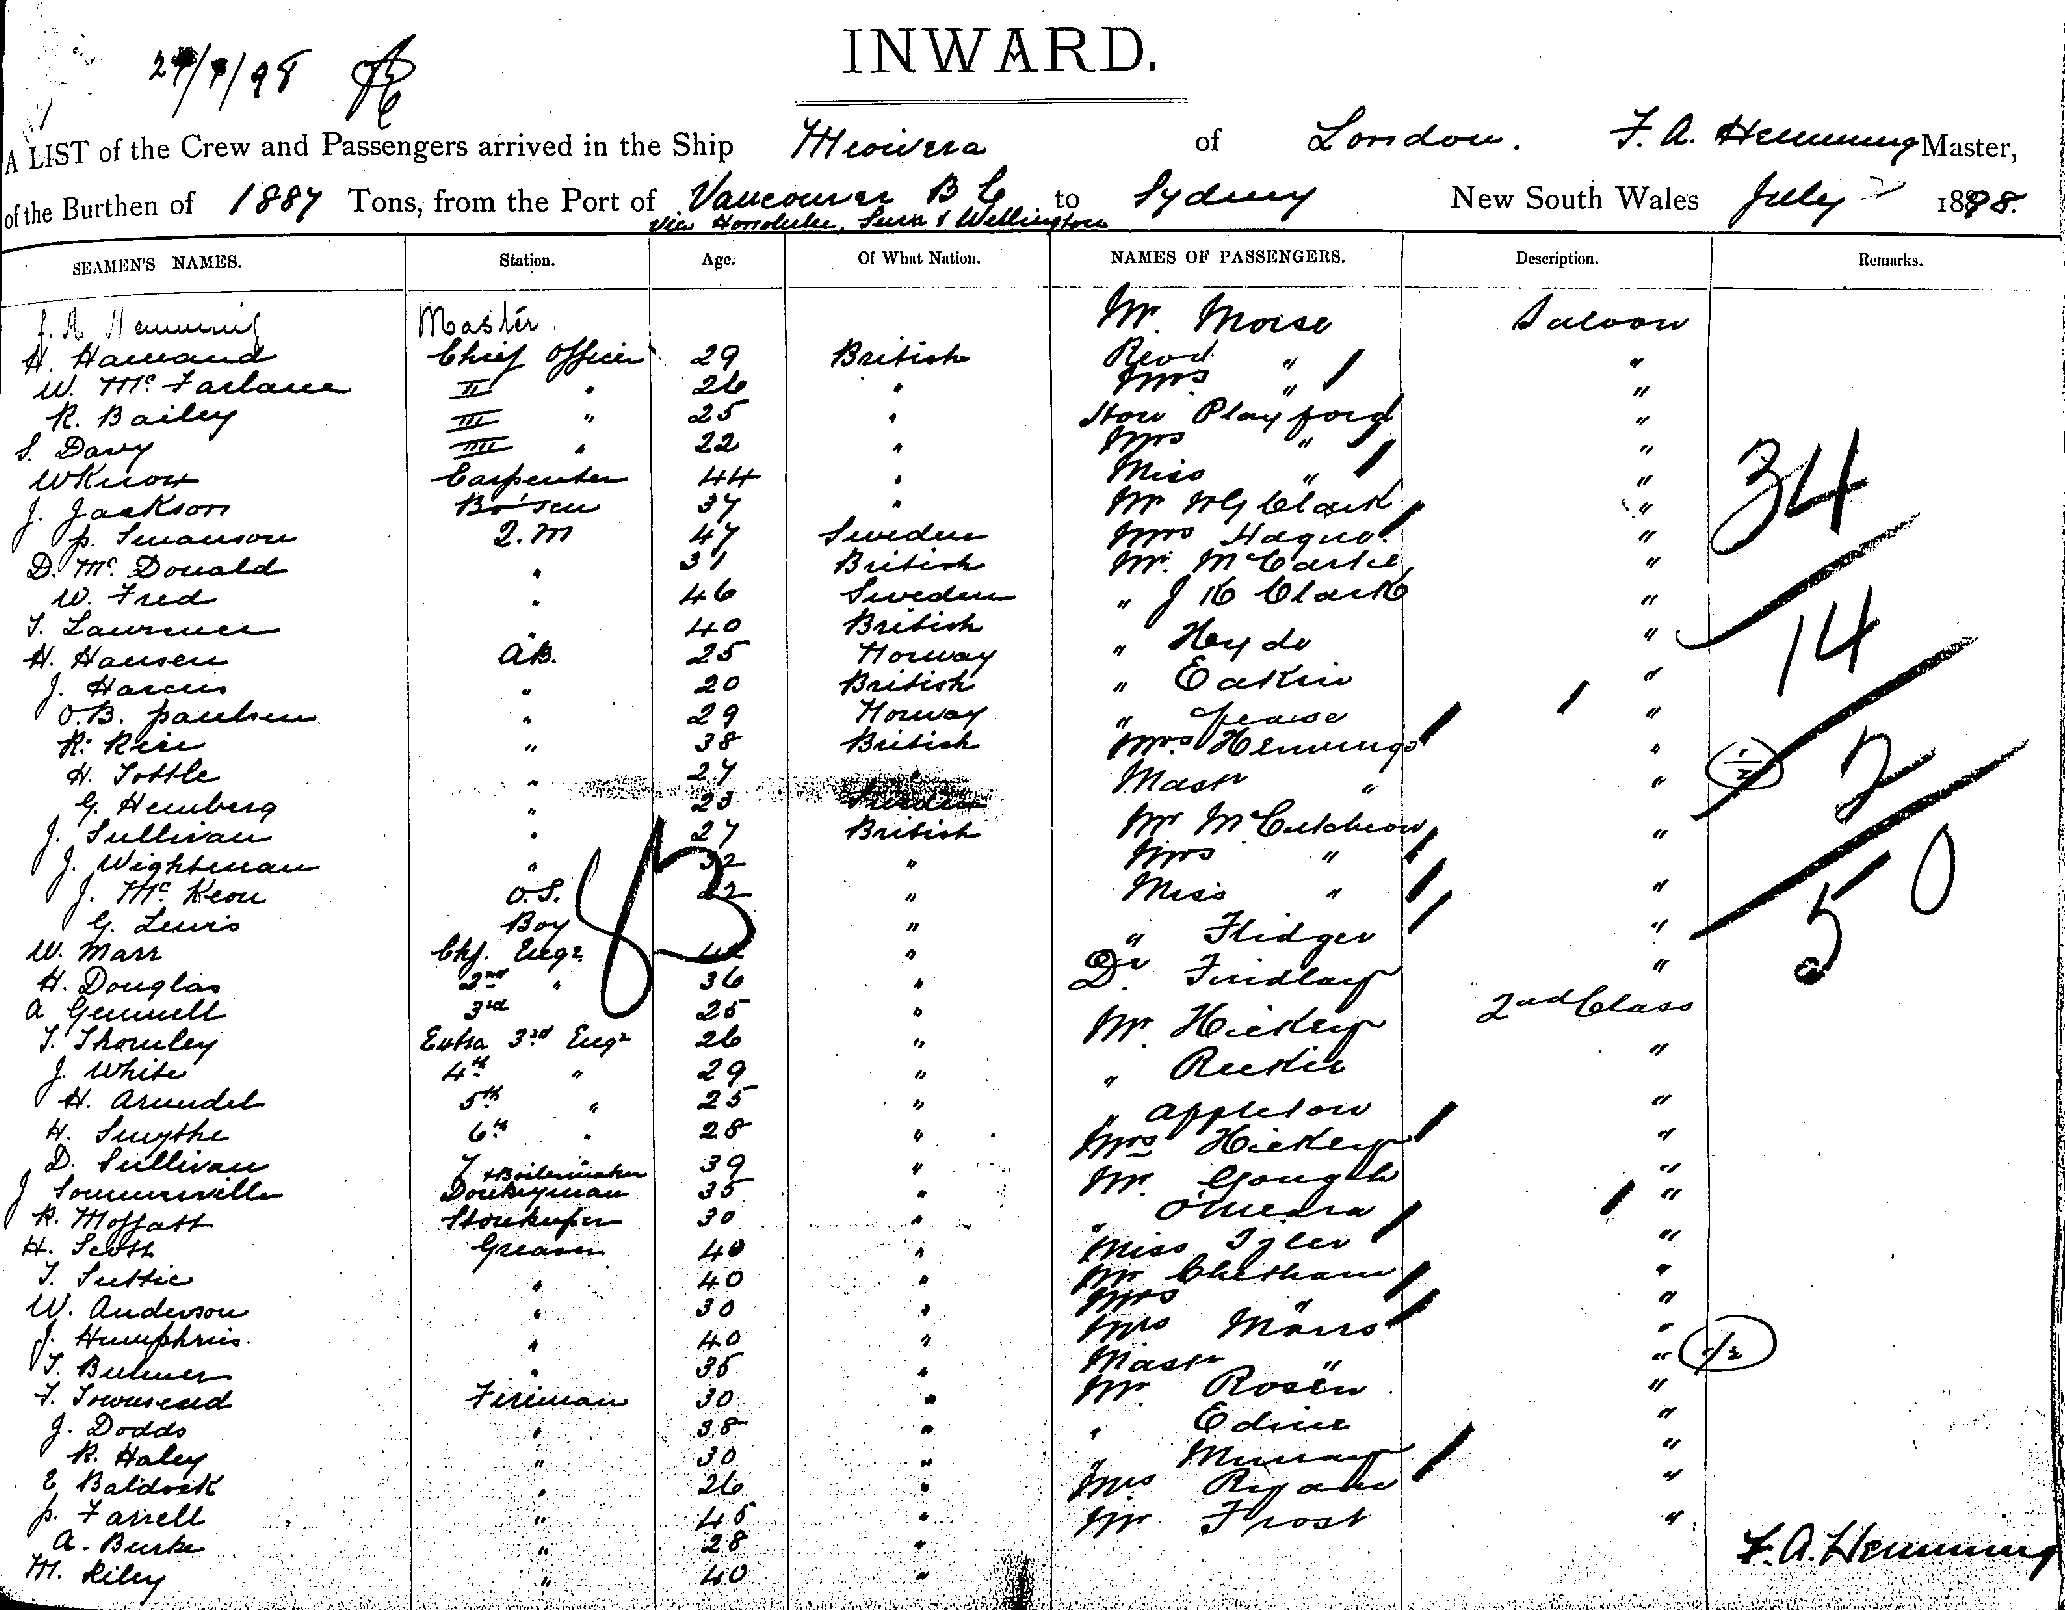 INWARD.
A LIST of the Crew and Passengers arrived in the Ship Miowera of London. F. A. Hemming Master,
of the Burthen of 1887 Tons, from the Port of Vancouver B C to Sydney New South Wales July 1898.
via Honolulu, Suva & Wellington
SEAMEN'S NAMES. Station. Age. Of What Nation. NAMES OF PASSENGERS. Description. Remarks.
F. A Hemming Master Mr. Morse Saloon
H. Hamand Chief Officer 29 British Revd " "
W. Mc Farlane II " 26 " Mrs " "
R. Bailey III " 25 " Hon Playford "
S. Davy IIII " 22 " Mrs " "
W Know Carpenter 44 " Miss " "
J. Jackson Bo'sen 37 " Mr Clark "
P. Swanson Q. M 47 Sweden Mrs "
D. Mc Donald " 31 British Mr. "
W. Fred " 46 Sweden " J Clark "
T. Lawrence " 40 British " Heyde "
H. Hansen AB. 25 Norway " Eakin "
J. Harcus " 20 British " Pearse "
O. B. Paulsen " 29 Norway Mrs Hemmings "
R. Rice " 38 British Mastr " " 1/2
H. Tottle " 27 "
G. Hemberg " 23 Sweden Mr McCutcheon "
J. Sullivan " 27 British Mrs "
J. Wightman " 32 " Miss " "
J. Mc Keon O.S. 22 "
G. Lewis Boy " " Flidger "
W. Marr Chf. Engr 42 " Dr Findlay "
H. Douglas 2nd " 36 "
A Gemmell 3rd 25 " Mr. Hickey 2nd Class
T. Thornley Extra 3rd Engr 26 " " "
J. White 4th " 29 "
H. Arundel 5th " 25 " " Appleton "
H. Smythe 6th " 28 " Mrs Hickey "
D. Sullivan 7 & Boilermaker 39 " Mr. Gough "
J Sommerville Donkeyman 35 " " O'Meara "
R. Moffatt Storekeeper 30 "
H. Scott Greaser 40 " Miss Tyler "
T. Suttie " 40 " Mr Chetham "
W. Anderson " 30 " Mrs " "
J. Humphries. " 40 " Mrs Morris "
T. Bulmer " 35 " Mastr " " 1/2
F. Townsend Fireman 30 " Mr. Rosen "
J. Dodds " 38 " " "
R. Haley " 30 " " Murray "
E Baldock " 26 " Mrs Ryan "
P. Farrell " 45 " Mr Frost "
A. Burke " 28 "
M. Riley " 40 "
34
14
2
50
43
F. A. Hemming